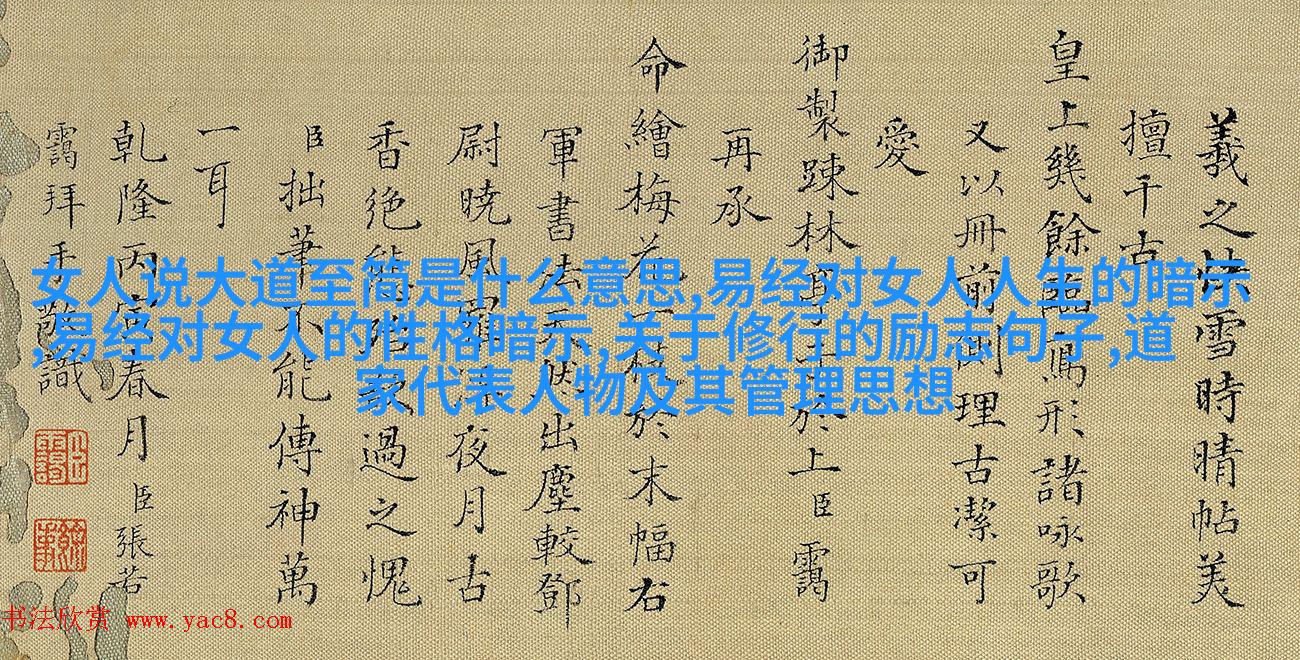 羲之快雪時晴帖美
擅千古
皇上幾餘臨寫形諸咏歌
又以冊前側理古潔可
愛
御製踈林於上臣靄
再承
命繪梅花一枝於末幅右
軍書法天然出塵較鄧
尉曉風羅浮夜月古
香絕過之愧
臣拙筆不能傳神萬
一耳
乾隆丙寅春月臣張若
靄拜手敬識
女人说大道至简是什么意思,易经对女人人生的暗示
,易经对女人的性格暗示,关于修行的励志句子,道
家代表人物及其管理思想
书法欣赏 www.yac8.com